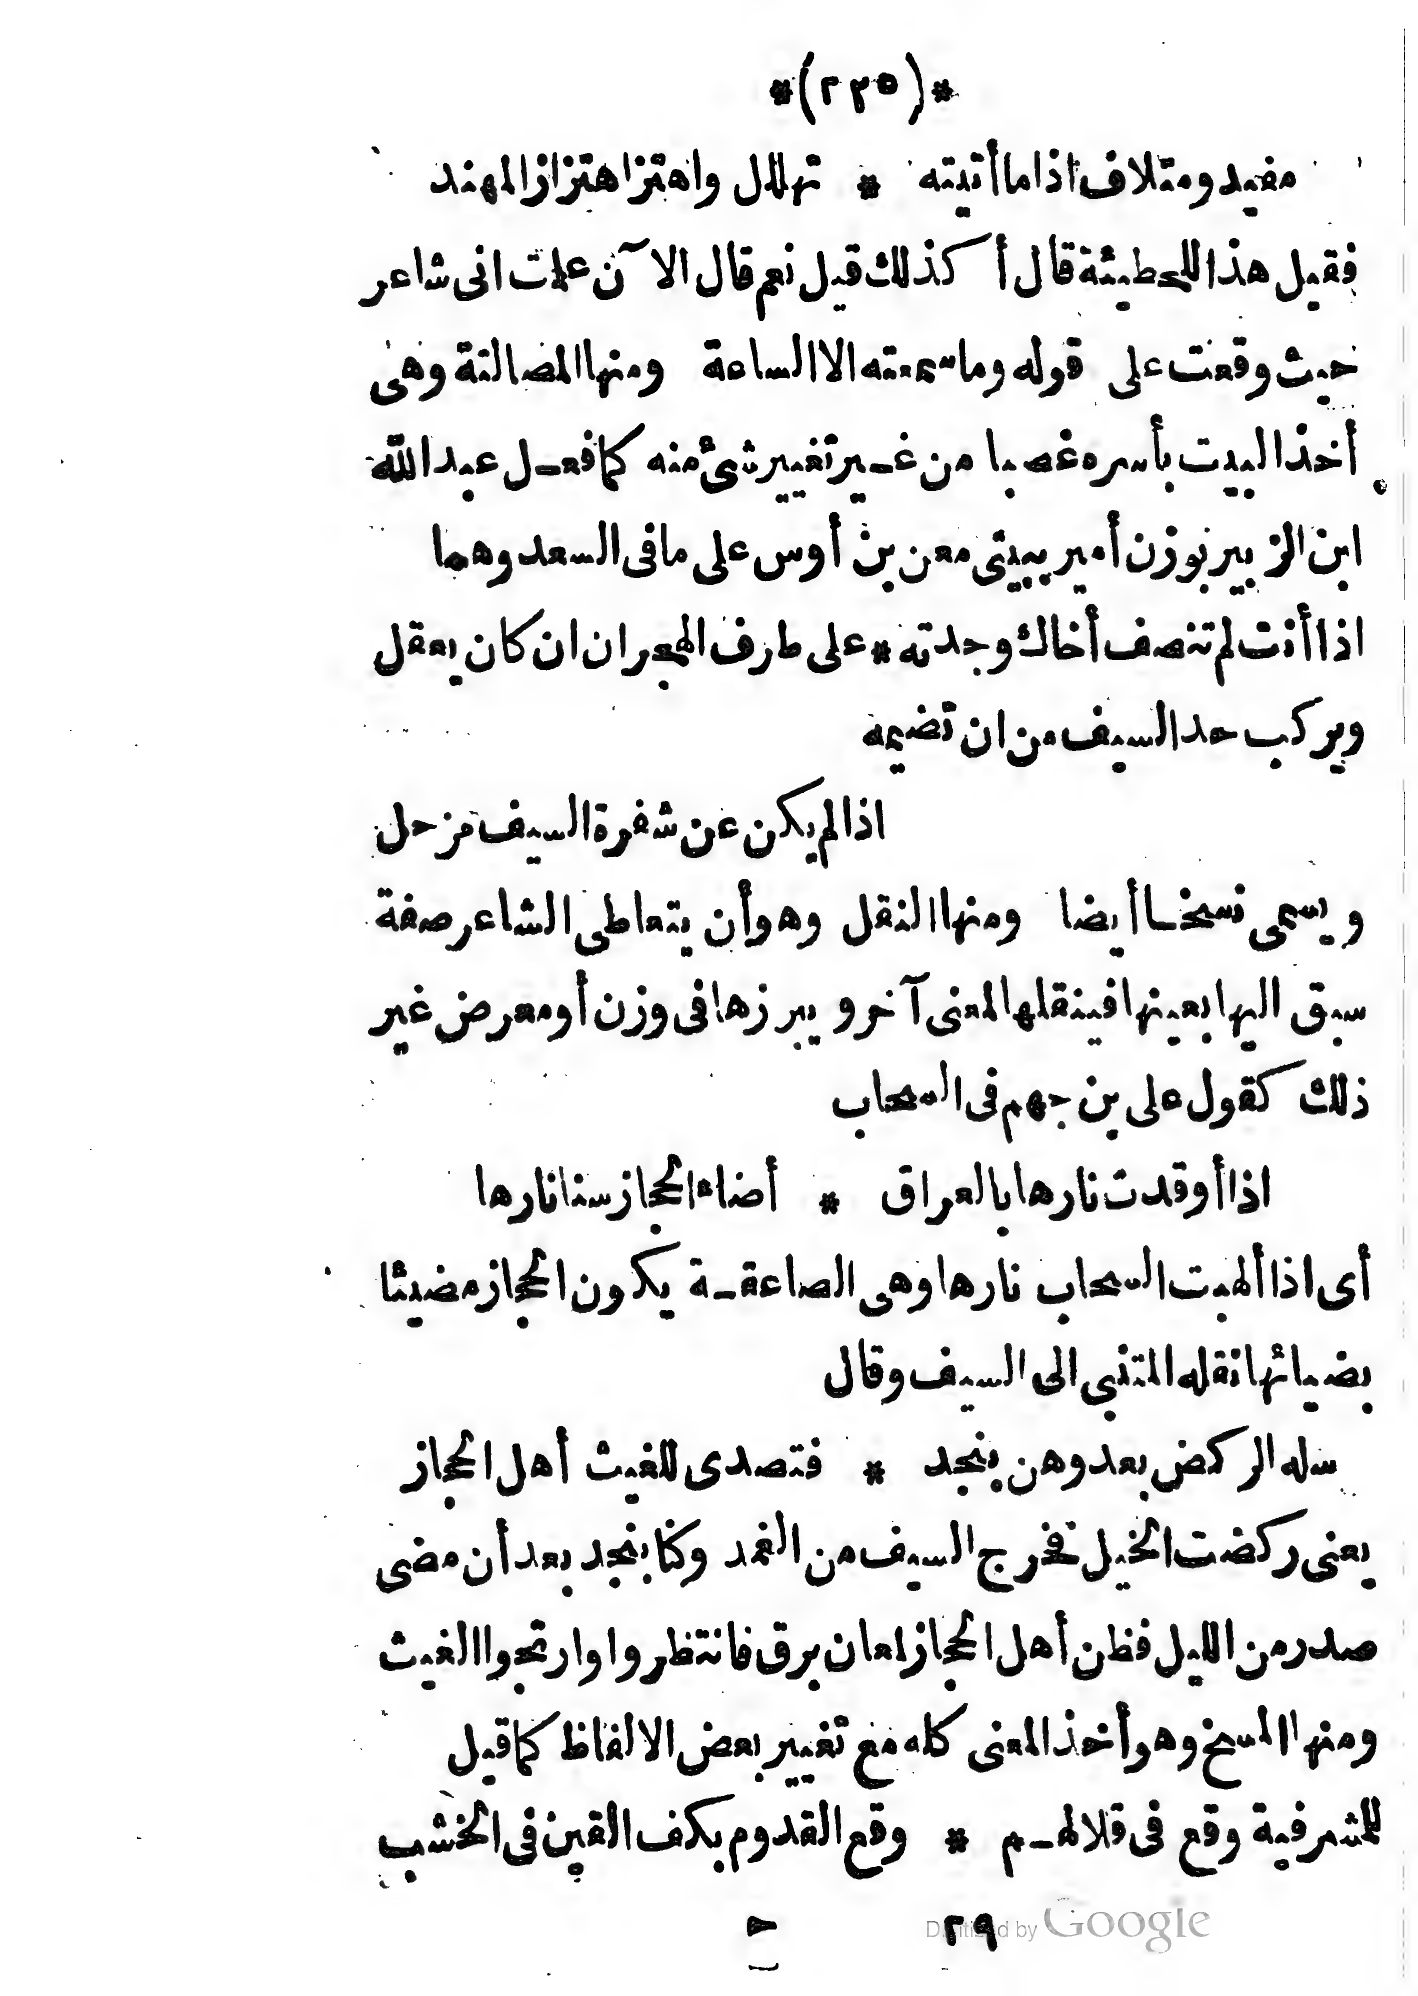 *(٢٢٥)*
مفيد ومتلاف اذا ما أتيته * تهلل واهتز اهتزاز المهند
فقيل هذا للحطيئة قال أ كذلك قيل نعم قال الا آن علمت انى شاعر
حيث وقعت على قوله وما سمعته الا الساعة ومنها المصالتة وهى
أخذ البيت بأسره غصبا من غير تغيير شئ منه كما فعل عبد الله
ابن الزبير نوزن أمير ببيتى معن بن أوس على ما فى السعد وهما
اذا أنت لم تنصف أخاك وجدته * على طرف الهجران ان كان يعقل
ويركب حد السيف من ان تضيمه
اذا لم يكن عن شفرة السيف مزحل
ويسمى نسخا أيضا ومنها النقل وهو أن يتعاطى الشاعر صفة
سبق اليها بعينها فينقلها لمعنى آخر ويبرزها فى وزن أو معرض غير
ذلك كقول على بن جهم فى السحاب
اذا أوقدت نارها بالعراق * أضاء الحجاز سنا نارها
أى اذا ألهبت السحاب نارها وهى الصاعقة يكون الحجاز مضيئا
بضيائها نقله المتنبى الى السيف وقال
سله الركض بعد وهن بنجد * فتصدى للغيث أهل الحجاز
يعنى ركضت الخيل فخرج السيف من الغمد وكنا بنجد بعد أن مضى
صدر من الليل فظن أهل الحجاز لمعان برق فانتظروا وارتجوا الغيث
ومنها المسخ وهو أخذ المعنى كله مع تغيير بعض الالفاظ كما قيل
للمشرفية وقع فى قلالهم * وقع القدوم بكف القين فى الخشب
٢٩ ح
Digitized by Google